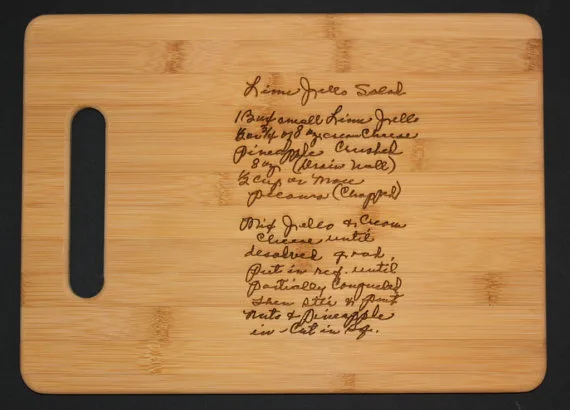 Lime Jello Salad
1 Box small Lime Jello
or 3/4 of 8 oz, cream Cheese
Pineapple Crushed
8 oz (Drain Well)
1/2 Cup or more
Pecans (Chopped)
Mix Jello & Cream
Cheese until
desolved
Put in ref. until
partially Congueled
Then stir & put
Nuts & Pineapple
in - Cut in Sq.